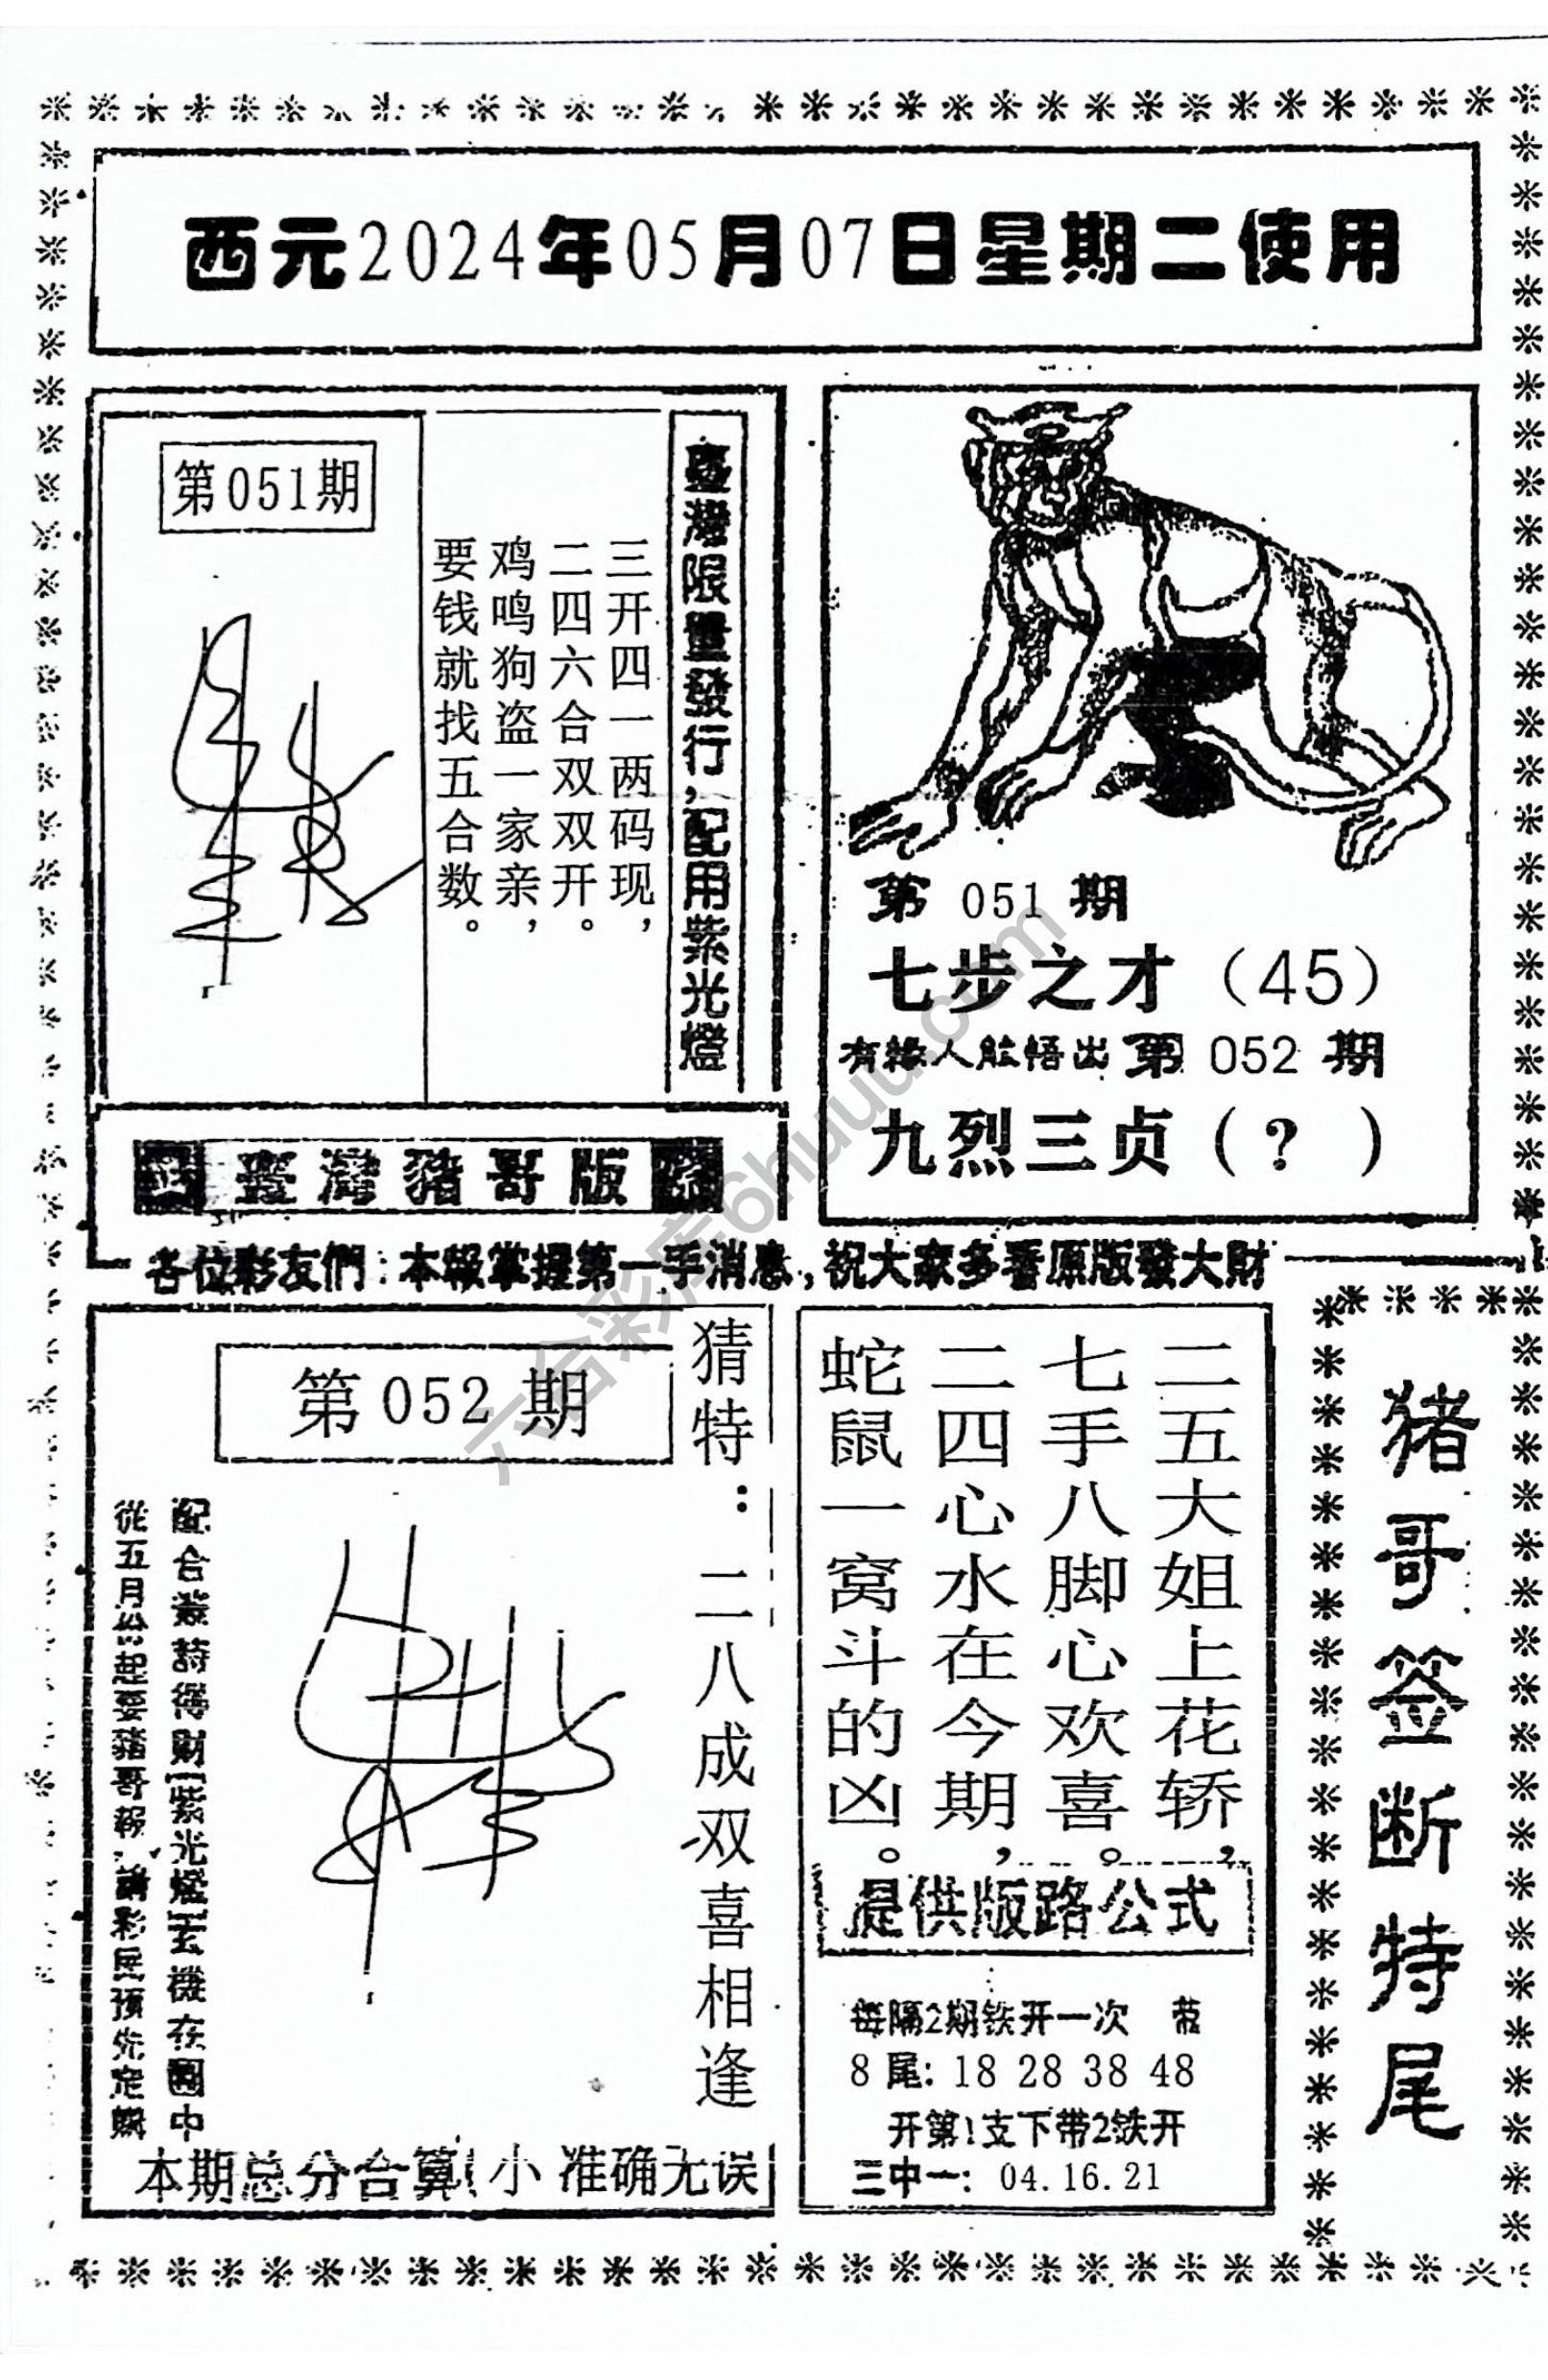 西元2024年05月07日星期二使用
第051期
三开四一两码现，
二四六合双双开。
鸡鸣狗盗一家亲，
要钱就找五合数。
臺灣限量發行，配用紫光燈
第 051 期
七步之才（45）
有緣人能悟出 第 052 期
九烈三贞（？）
臺灣豬哥版
各位彩友們：本報掌握第一手消息，祝大家多看原版發大財
第 052 期
猜特：二八成双喜相逢
配合簽詩得財[紫光燈]玄機在圈中
從五月份起要豬哥報，請彩民預先定購
本期总分合算！小 准确无误
二五大姐上花轿，
七手八脚心欢喜。
二四心水在今期，
蛇鼠一窝斗的凶。
提供版路公式
每隔2期铁开一次 带
8 尾：18 28 38 48
开第1支下带2铁开
三中一：04.16.21
猪哥签断特尾
六合彩库6huuu.com